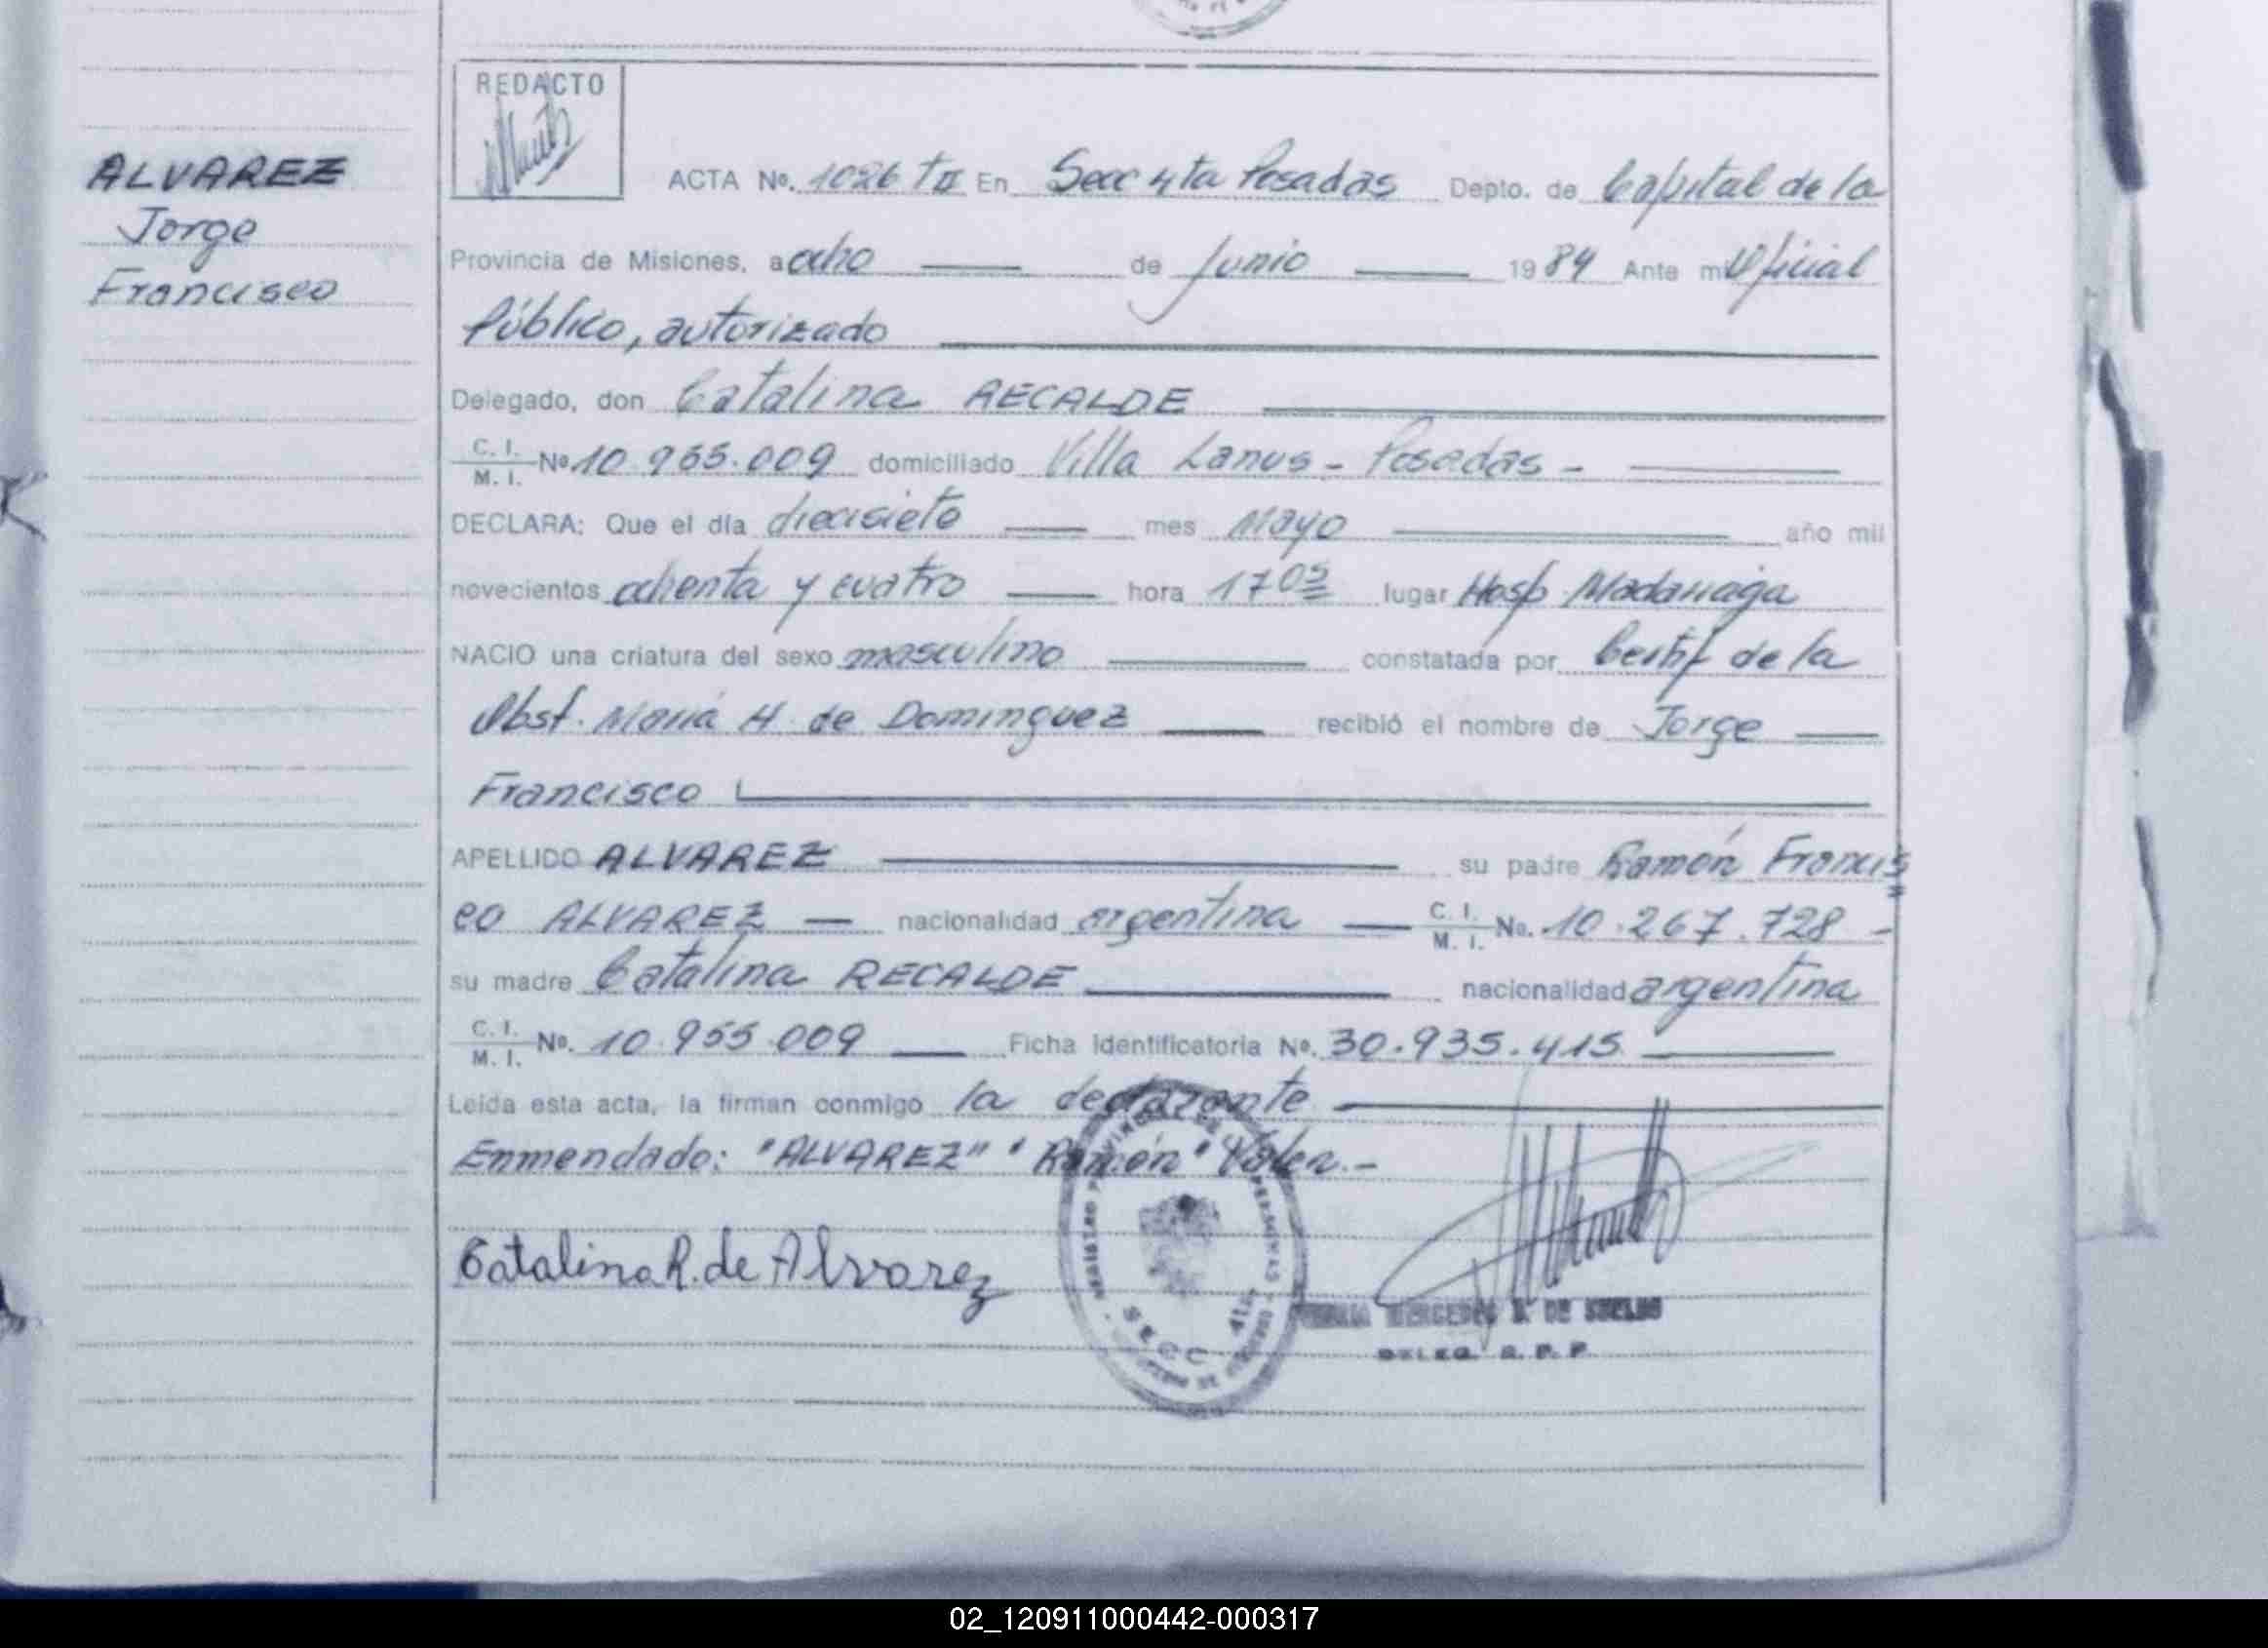 REDACTO
ALVAREZ
Jorge
Francisco
ACTA Nº. 1026 TII En Secc 4ta Posadas Depto. de Capital de la
Provincia de Misiones, a ocho de Junio 1984 Ante mi Oficial
Público, autorizado
Delegado, don Catalina RECALDE
C. I. / M. I. Nº 10.955.009 domiciliado Villa Lanus - Posadas -
DECLARA: Que el día diecisiete mes Mayo año mil
novecientos ochenta y cuatro hora 17 05 lugar Hosp. Madariaga
NACIO una criatura del sexo masculino constatada por Certif de la
Obst. María H. de Dominguez recibió el nombre de Jorge
Francisco
APELLIDO ALVAREZ su padre Ramón Francis
co ALVAREZ — nacionalidad argentina — C. I. / M. I. No. 10.267.728 -
su madre Catalina RECALDE nacionalidad argentina
C. I. / M. I. Nº. 10.955.009 Ficha Identificatoria Nº. 30.935.415
Leída esta acta, la firman conmigo la declarante
Enmendado: "ALVAREZ" "Ramón" Valen.-
Catalina R. de Alvarez
SECC 4ta.
MERCEDES DE
DELEG. R. P. P.
02_120911000442-000317